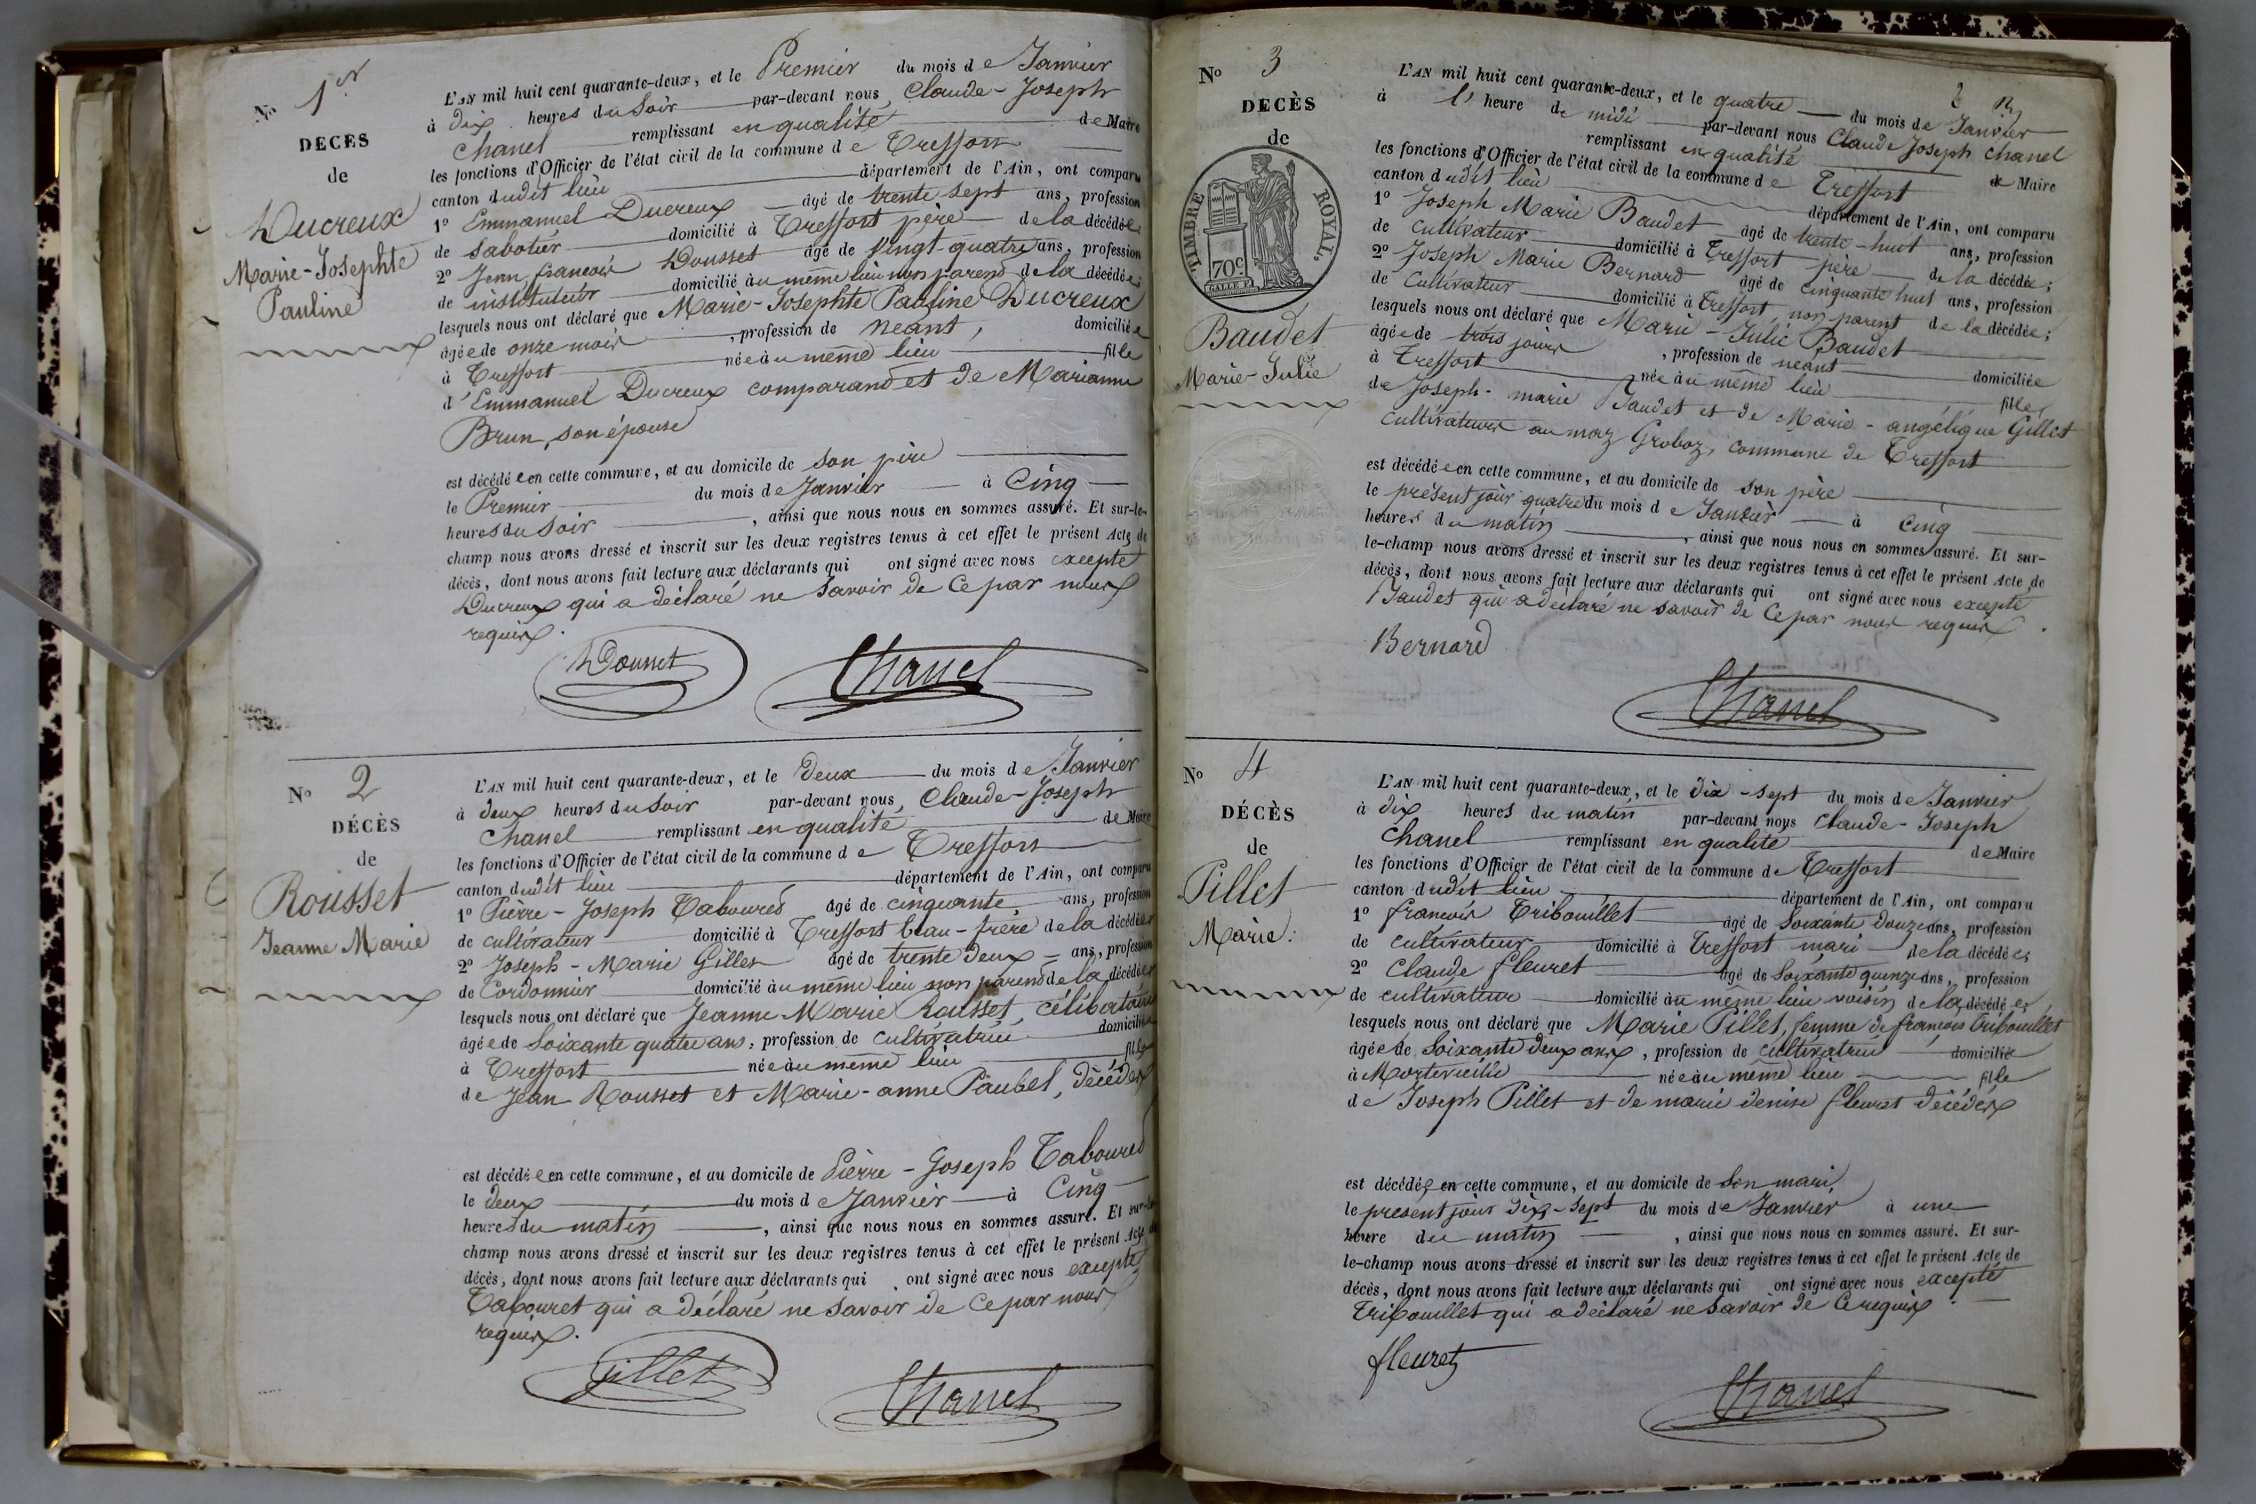 No 1er
DECES
de
Ducreux
Marie-Josephte
Pauline
L'AN mil huit cent quarante-deux, et le Premier du mois de Janvier
à dix heures du Soir par-devant nous Claude-Joseph
Chanel remplissant en qualité de Maire
les fonctions d'Officier de l'état civil de la commune de Treffort
canton dudit lieu département de l'Ain, ont comparu
1º Emmanuel Ducreux âgé de trente sept ans, profession
de sabotier domicilié à Treffort père de la décédée
2º Jean françois Dousset âgé de vingt-quatre ans, profession
de instituteur domicilié au même lieu non parend de la décédée
lesquels nous ont déclaré que Marie-Josephte Pauline Ducreux
âgée de onze mois, profession de néant, domiciliée
à Treffort née au même lieu fille
d'Emmanuel Ducreux comparand et de Marianne
Brun, son épouse
est décédée en cette commune, et au domicile de son père
le Premier du mois de Janvier à Cinq
heures du soir, ainsi que nous nous en sommes assuré. Et sur-le-
champ nous avons dressé et inscrit sur les deux registres tenus à cet effet le présent Acte de
décès, dont nous avons fait lecture aux déclarants qui ont signé avec nous excepté
Ducreux qui a déclaré ne savoir de ce par nous
requis.
Dousset Chanel
No 2
DÉCÈS
de
Rousset
Jeanne Marie
L'AN mil huit cent quarante-deux, et le Deux du mois de Janvier
à deux heures du Soir par-devant nous Claude-Joseph
Chanel remplissant en qualité de Maire
les fonctions d'Officier de l'état civil de la commune de Treffort
canton dudit lieu département de l'Ain, ont comparu
1º Pierre-Joseph Tabouret âgé de cinquante ans, profession
de cultivateur domicilié à Treffort beau-frère de la décédée
2º Joseph-Marie Gillet âgé de trente deux ans, profession
de Cordonnier domicilié au même lieu non parend de la décédée
lesquels nous ont déclaré que Jeanne Marie Rousset, célibataire
âgée de Soixante quatre ans, profession de cultivatrice domiciliée
à Treffort née au même lieu fille
de Jean Rousset et Marie-anne Paubel, décédés
est décédée en cette commune, et au domicile de Pierre-Joseph Tabouret
le deux du mois de Janvier à Cinq
heures du matin, ainsi que nous nous en sommes assuré. Et sur-le-
champ nous avons dressé et inscrit sur les deux registres tenus à cet effet le présent Acte de
décès, dont nous avons fait lecture aux déclarants qui ont signé avec nous excepté
Tabouret qui a déclaré ne savoir de ce par nous
requis.
Gillet Chanel
No 3
DECÈS
de
TIMBRE ROYAL.
70c
Baudet
Marie-Julie
2
L'AN mil huit cent quarante-deux, et le quatre du mois de Janvier
à l' heure de midi par-devant nous Claude Joseph Chanel
remplissant en qualité de Maire
les fonctions d'Officier de l'état civil de la commune de Treffort
canton dudit lieu département de l'Ain, ont comparu
1º Joseph Marie Baudet âgé de trente-huit ans, profession
de Cultivateur domicilié à Treffort père de la décédée;
2º Joseph Marie Bernard âgé de cinquante huit ans, profession
de Cultivateur domicilié à Treffort, non parent de la décédée;
lesquels nous ont déclaré que Marie-Julie Baudet
âgée de trois jours, profession de néant domiciliée
à Treffort née au même lieu fille
de Joseph-marie Baudet et de Marie-angélique Gillet
cultivateurs au maz Groboz, commune de Treffort
est décédée en cette commune, et au domicile de son père
le présent jour quatre du mois de Janvier à Cinq
heures du matin, ainsi que nous nous en sommes assuré. Et sur-
le-champ nous avons dressé et inscrit sur les deux registres tenus à cet effet le présent Acte de
décès, dont nous avons fait lecture aux déclarants qui ont signé avec nous excepté
Baudet qui a déclaré ne savoir de ce par nous requis.
Bernard
Chanel
No 4
DÉCÈS
de
Pillet
Marie:
L'AN mil huit cent quarante-deux, et le dix-sept du mois de Janvier
à dix heures du matin par-devant nous Claude-Joseph
Chanel remplissant en qualité de Maire
les fonctions d'Officier de l'état civil de la commune de Treffort
canton dudit lieu département de l'Ain, ont comparu
1º françois Tribouillet âgé de Soixante douze ans, profession
de cultivateur domicilié à Treffort mari de la décédée;
2º Claude fleuret âgé de Soixante quinze ans, profession
de cultivateur domicilié au même lieu voisin de la décédée,
lesquels nous ont déclaré que Marie Pillet, femme de françois Tribouillet
âgée de Soixante deux ans, profession de cultivatrice domiciliée
à Montevieille née au même lieu fille
de Joseph Pillet et de marie denise fleuret décédés
est décédée en cette commune, et au domicile de Son mari
le présent jour dix-sept du mois de Janvier à une
heure du matin, ainsi que nous nous en sommes assuré. Et sur-
le-champ nous avons dressé et inscrit sur les deux registres tenus à cet effet le présent Acte de
décès, dont nous avons fait lecture aux déclarants qui ont signé avec nous excepté
Tribouillet qui a déclaré ne savoir de ce requis.
fleuret
Chanel